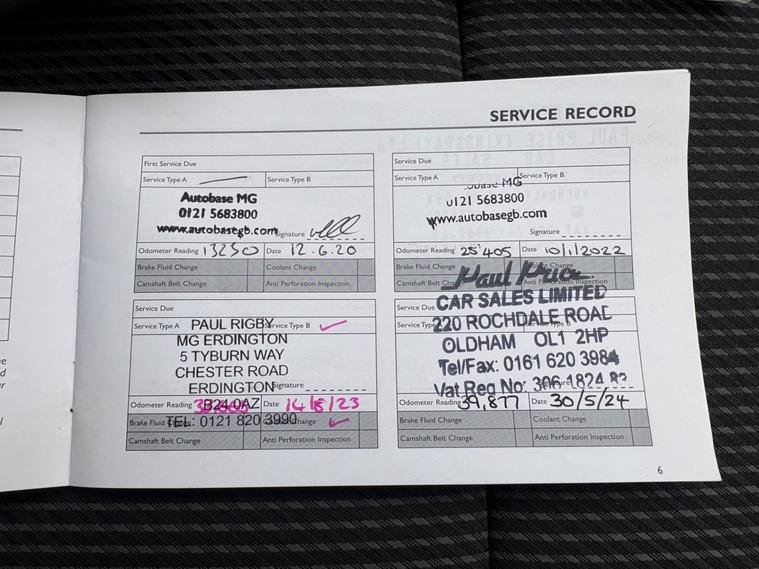 SERVICE RECORD
First Service Due
Service Type A
Service Type B
Autobase MG
0121 5683800
www.autobasegb.com
Signature
Odometer Reading 13250 Date 12.6.20
Brake Fluid Change
Coolant Change
Camshaft Belt Change
Anti Perforation Inspection
Service Due
Service Type A
Service Type B
MG
0121 5683800
www.autobasegb.com
Signature
Odometer Reading 25'405 Date 10/1/2022
Brake Fluid
Change
Camshaft Belt
Anti Perforation Inspection
Service Due
Service Type A
Service Type B ✓
PAUL RIGBY
MG ERDINGTON
5 TYBURN WAY
CHESTER ROAD
ERDINGTON
Signature
B24 0AZ
Odometer Reading
Date 14/8/23
TEL: 0121 820 3990
Brake Fluid
Change ✓
Camshaft Belt Change
Anti Perforation Inspection
Service Due
Service Type
Paul Price
CAR SALES LIMITED
220 ROCHDALE ROAD
OLDHAM OL1 2HP
Tel/Fax: 0161 620 3984
Vat Reg No: 306 1824
Odometer Reading 39,877 Date 30/5/24
Brake Fluid Change
Coolant Change
Camshaft Belt Change
Anti Perforation Inspection
6